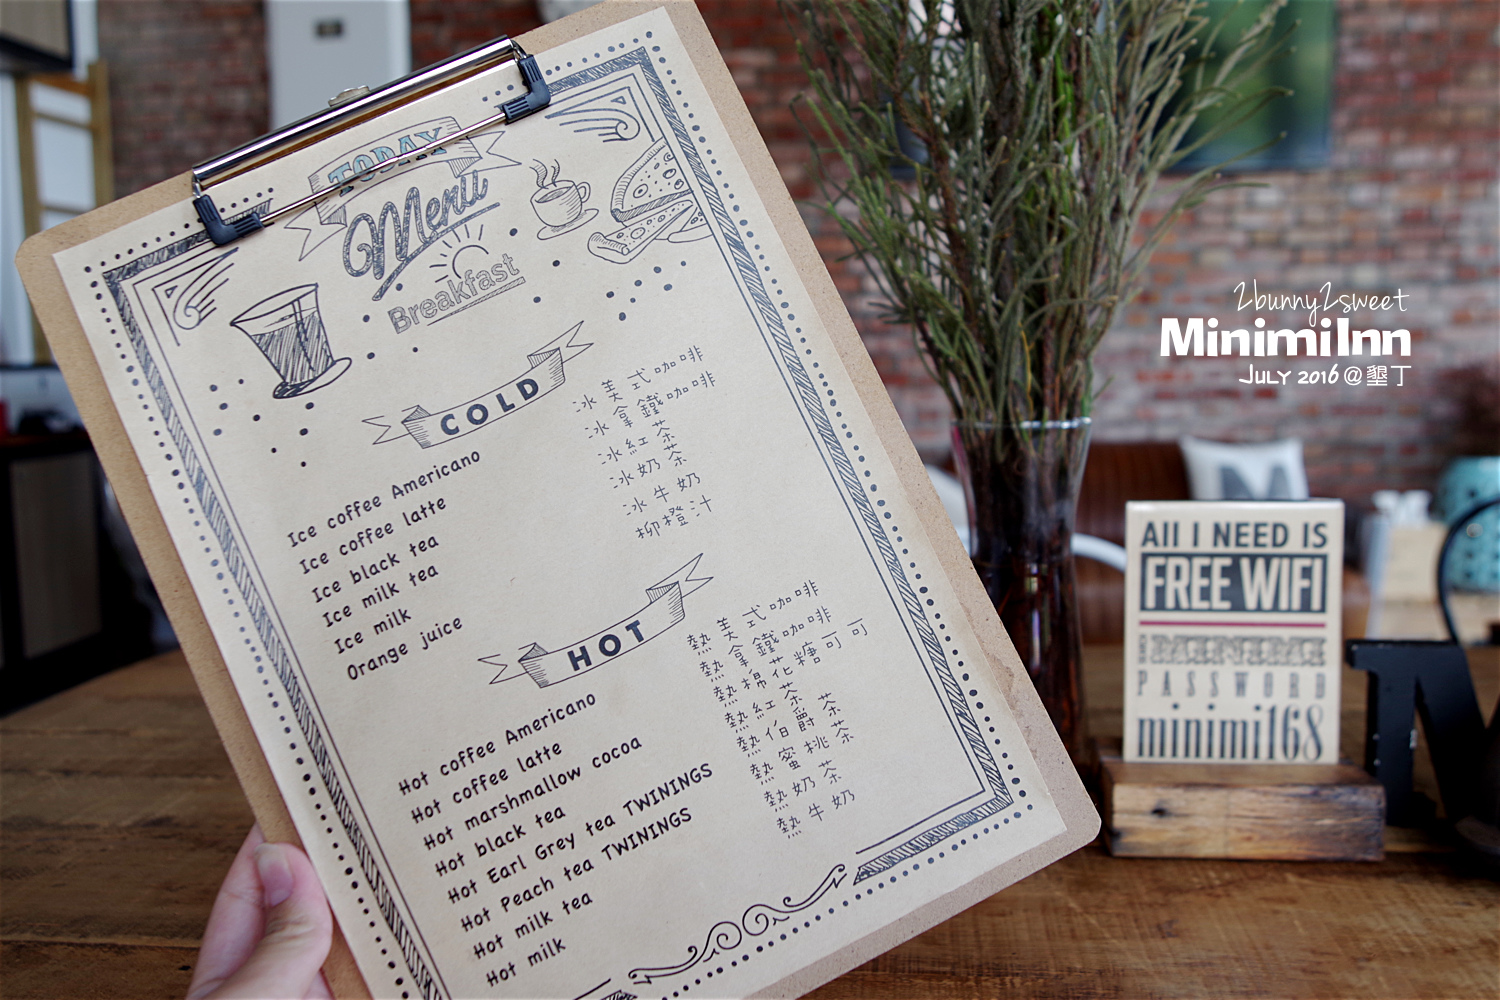 TODAY
Menu
Breakfast
COLD
Ice coffee Americano 冰美式咖啡
Ice coffee latte 冰拿鐵咖啡
Ice black tea 冰紅茶
Ice milk tea 冰奶茶
Ice milk 冰牛奶
Orange juice 柳橙汁
HOT
Hot coffee Americano 熱美式咖啡
Hot coffee latte 熱拿鐵咖啡
Hot marshmallow cocoa 熱棉花糖可可
Hot black tea 熱紅茶
Hot Earl Grey tea TWININGS 熱伯爵茶
Hot Peach tea TWININGS 熱蜜桃茶
Hot milk tea 熱奶茶
Hot milk 熱牛奶
2bunny2sweet
MinimiInn
JULY 2016 @ 墾丁
All I NEED IS
FREE WIFI
PASSWORD
minimi168
M